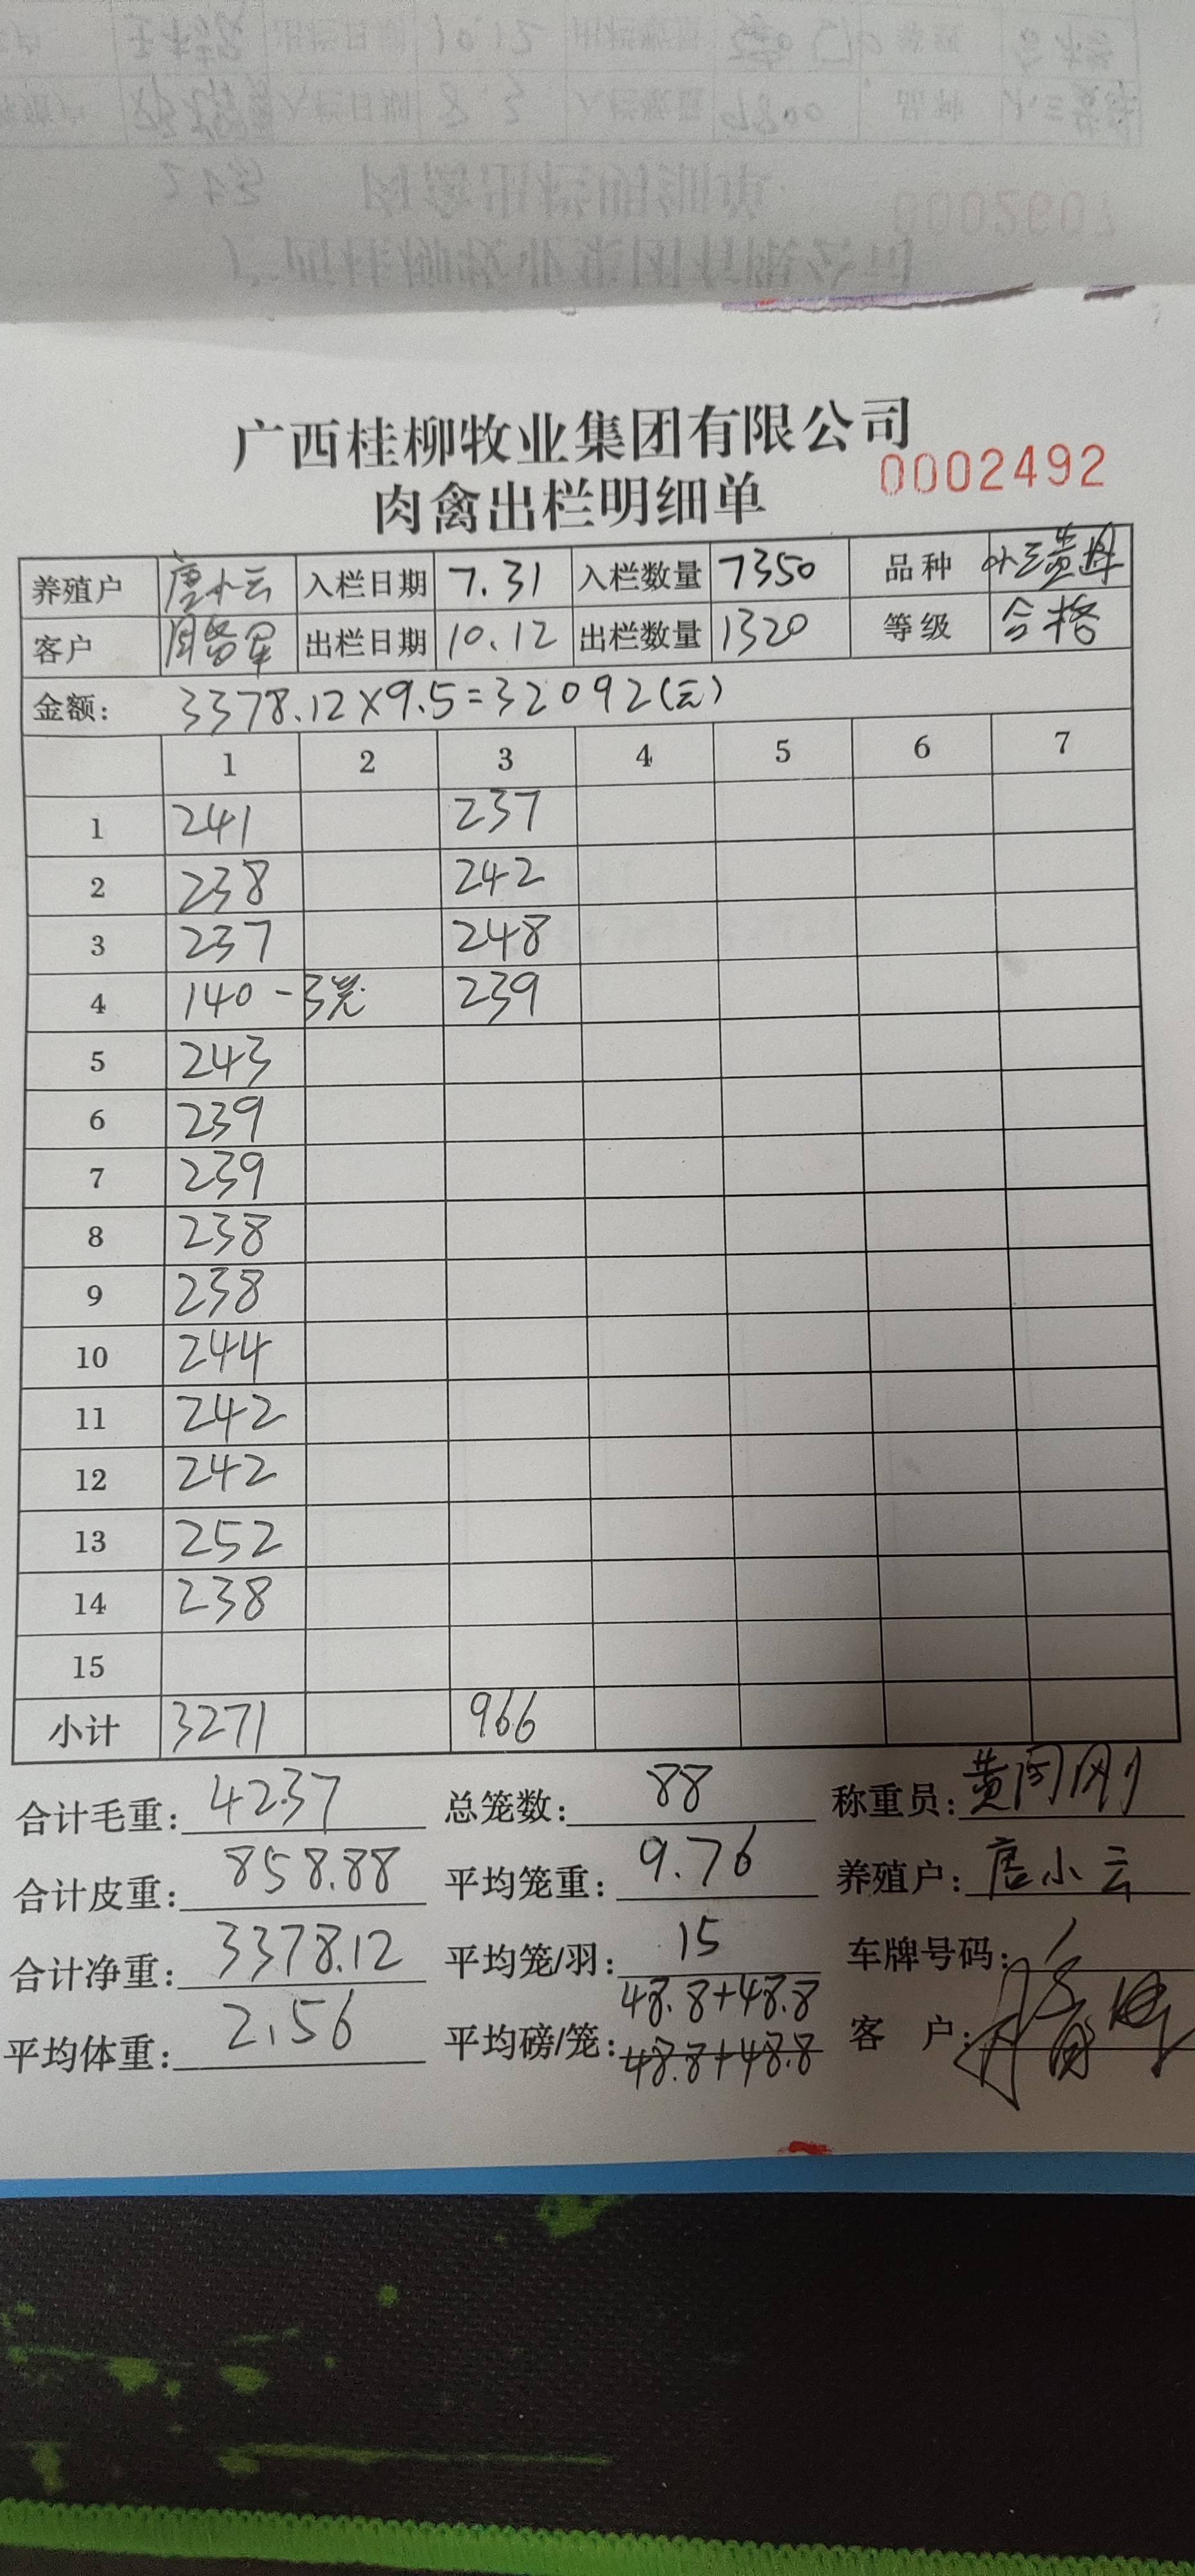 广西桂柳牧业集团有限公司
肉禽出栏明细单 0002492
养殖户 唐小云 入栏日期 7.31 入栏数量 7350 品种
客户 出栏日期 10.12 出栏数量 1320 等级 合格
金额: 3378.12×9.5=32092(元)
1 2 3 4 5 6 7
1 241 237
2 238 242
3 237 248
4 140 -3笼 239
5 243
6 239
7 239
8 238
9 238
10 244
11 242
12 242
13 252
14 238
15
小计 3271 966
合计毛重: 4237 总笼数: 88 称重员: 黄同刚
合计皮重: 858.88 平均笼重: 9.76 养殖户: 唐小云
合计净重: 3378.12 平均笼/羽: 15 车牌号码:
48.8+48.8
平均体重: 2.56 平均磅/笼: 48.8+48.8 客 户: